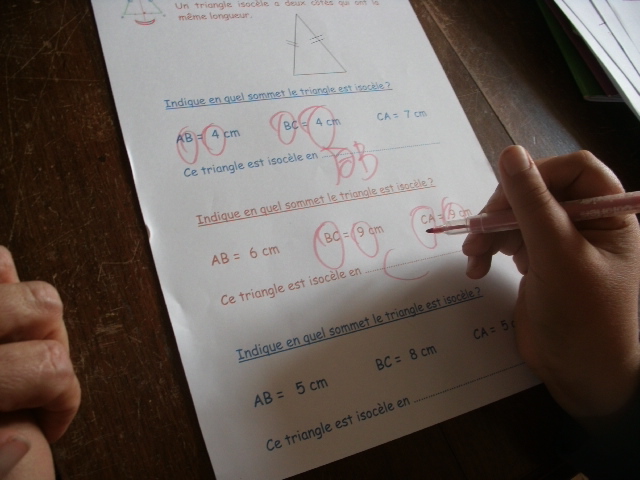 Un triangle isocèle a deux côtés qui ont la
même longueur.
Indique en quel sommet le triangle est isocèle ?
AB = 4 cm BC = 4 cm CA = 7 cm
Ce triangle est isocèle en B
Indique en quel sommet le triangle est isocèle ?
AB = 6 cm BC = 9 cm CA = 9 cm
Ce triangle est isocèle en C
Indique en quel sommet le triangle est isocèle ?
AB = 5 cm BC = 8 cm CA = 5 c
Ce triangle est isocèle en